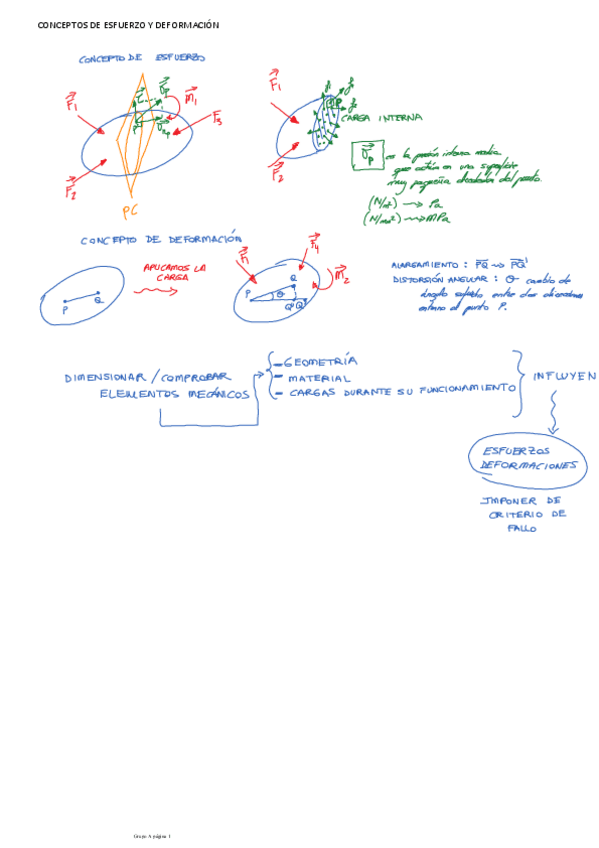 CONCEPTOS DE ESFUERZO Y DEFORMACIÓN
CONCEPTO DE ESFUERZO
F1
M1
F3
F2
P
PC
F1
F2
CARGA INTERNA
σp es la presión interna media
que actúa en una superficie
muy pequeña alrededor del punto.
(N/m²) → Pa
(N/mm²) → MPa
CONCEPTO DE DEFORMACIÓN
P
Q
APLICAMOS LA
CARGA
F4
M2
P
Q
θ
Q'
ALARGAMIENTO : PQ → PQ'
DISTORSIÓN ANGULAR : θ cambio de
ángulo sufrido entre dos direcciones
entorno al punto P.
DIMENSIONAR / COMPROBAR
ELEMENTOS MECÁNICOS
- GEOMETRÍA
- MATERIAL
- CARGAS DURANTE SU FUNCIONAMIENTO
INFLUYEN
ESFUERZOS
DEFORMACIONES
IMPONER DE
CRITERIO DE
FALLO
Grupo A página 1